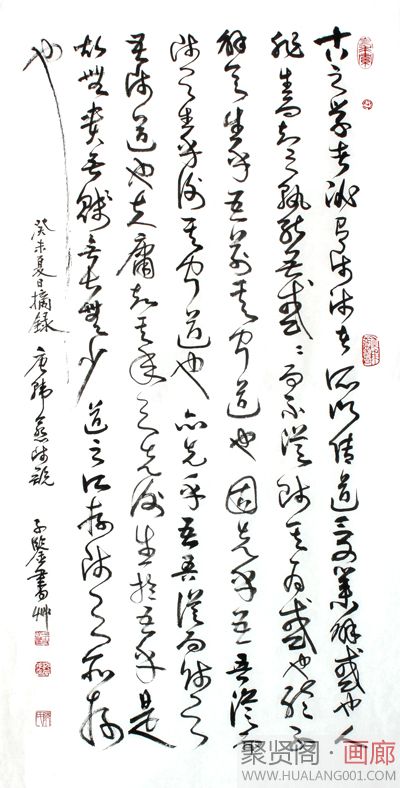 古之學者必有師師者所以傳道受業解惑也人
非生而知之孰能無惑々而不從師其為惑也終不
解矣生乎吾前其聞道也固先乎吾吾從而
師之生乎後其聞道也亦先乎吾吾從而師之
吾師道也夫庸知其年之先後生於吾乎是
故無貴無賤無長無少道之所存師之所存
也
癸未夏日摘録 唐韓愈師說 子鑒書艸
聚贤阁·画廊
WWW.HUALANG001.COM